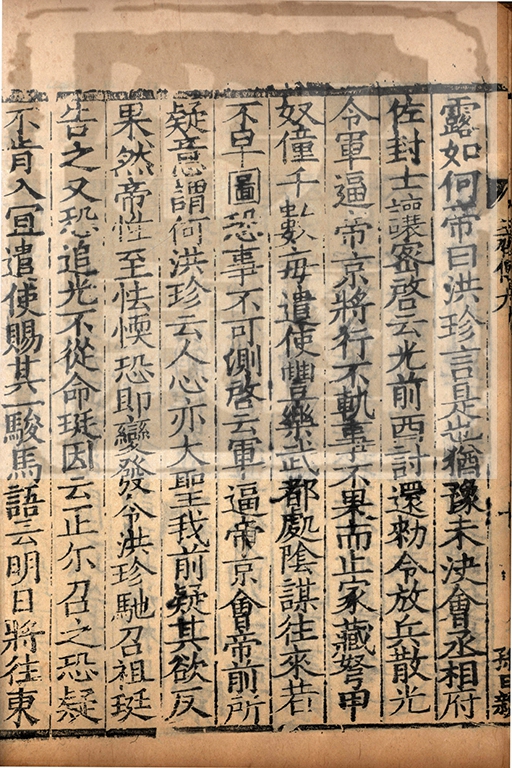 露如何帝曰洪珍言是也猶豫未決會丞相府
佐封士讓密啓云光前西討還勑令放兵散光
令軍逼帝京將行不軌事不果而止家藏弩甲
奴僮千數每遣使豐樂武都處陰謀往來若
不早圖恐事不可測啓云軍逼帝京會帝前所
疑意謂何洪珍云人心亦大聖我前疑其欲反
果然帝性至怯愞恐即變發令洪珍馳召祖珽
告之又恐追光不從命珽因云正尔召之恐疑
不肯入宜遣使賜其一駿馬語云明日將往東